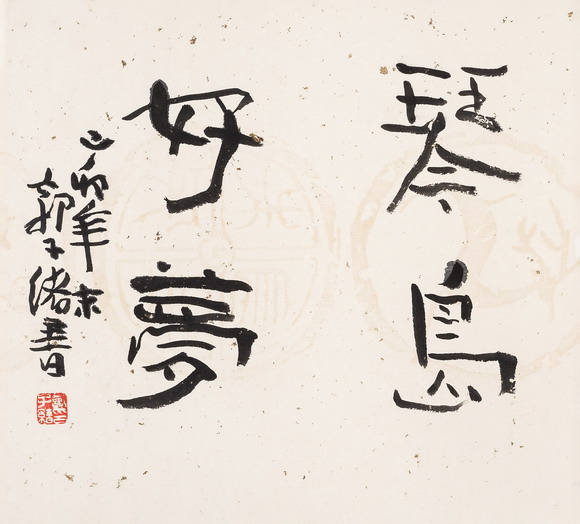 琴島
好夢
己卯年末
郭子绪書